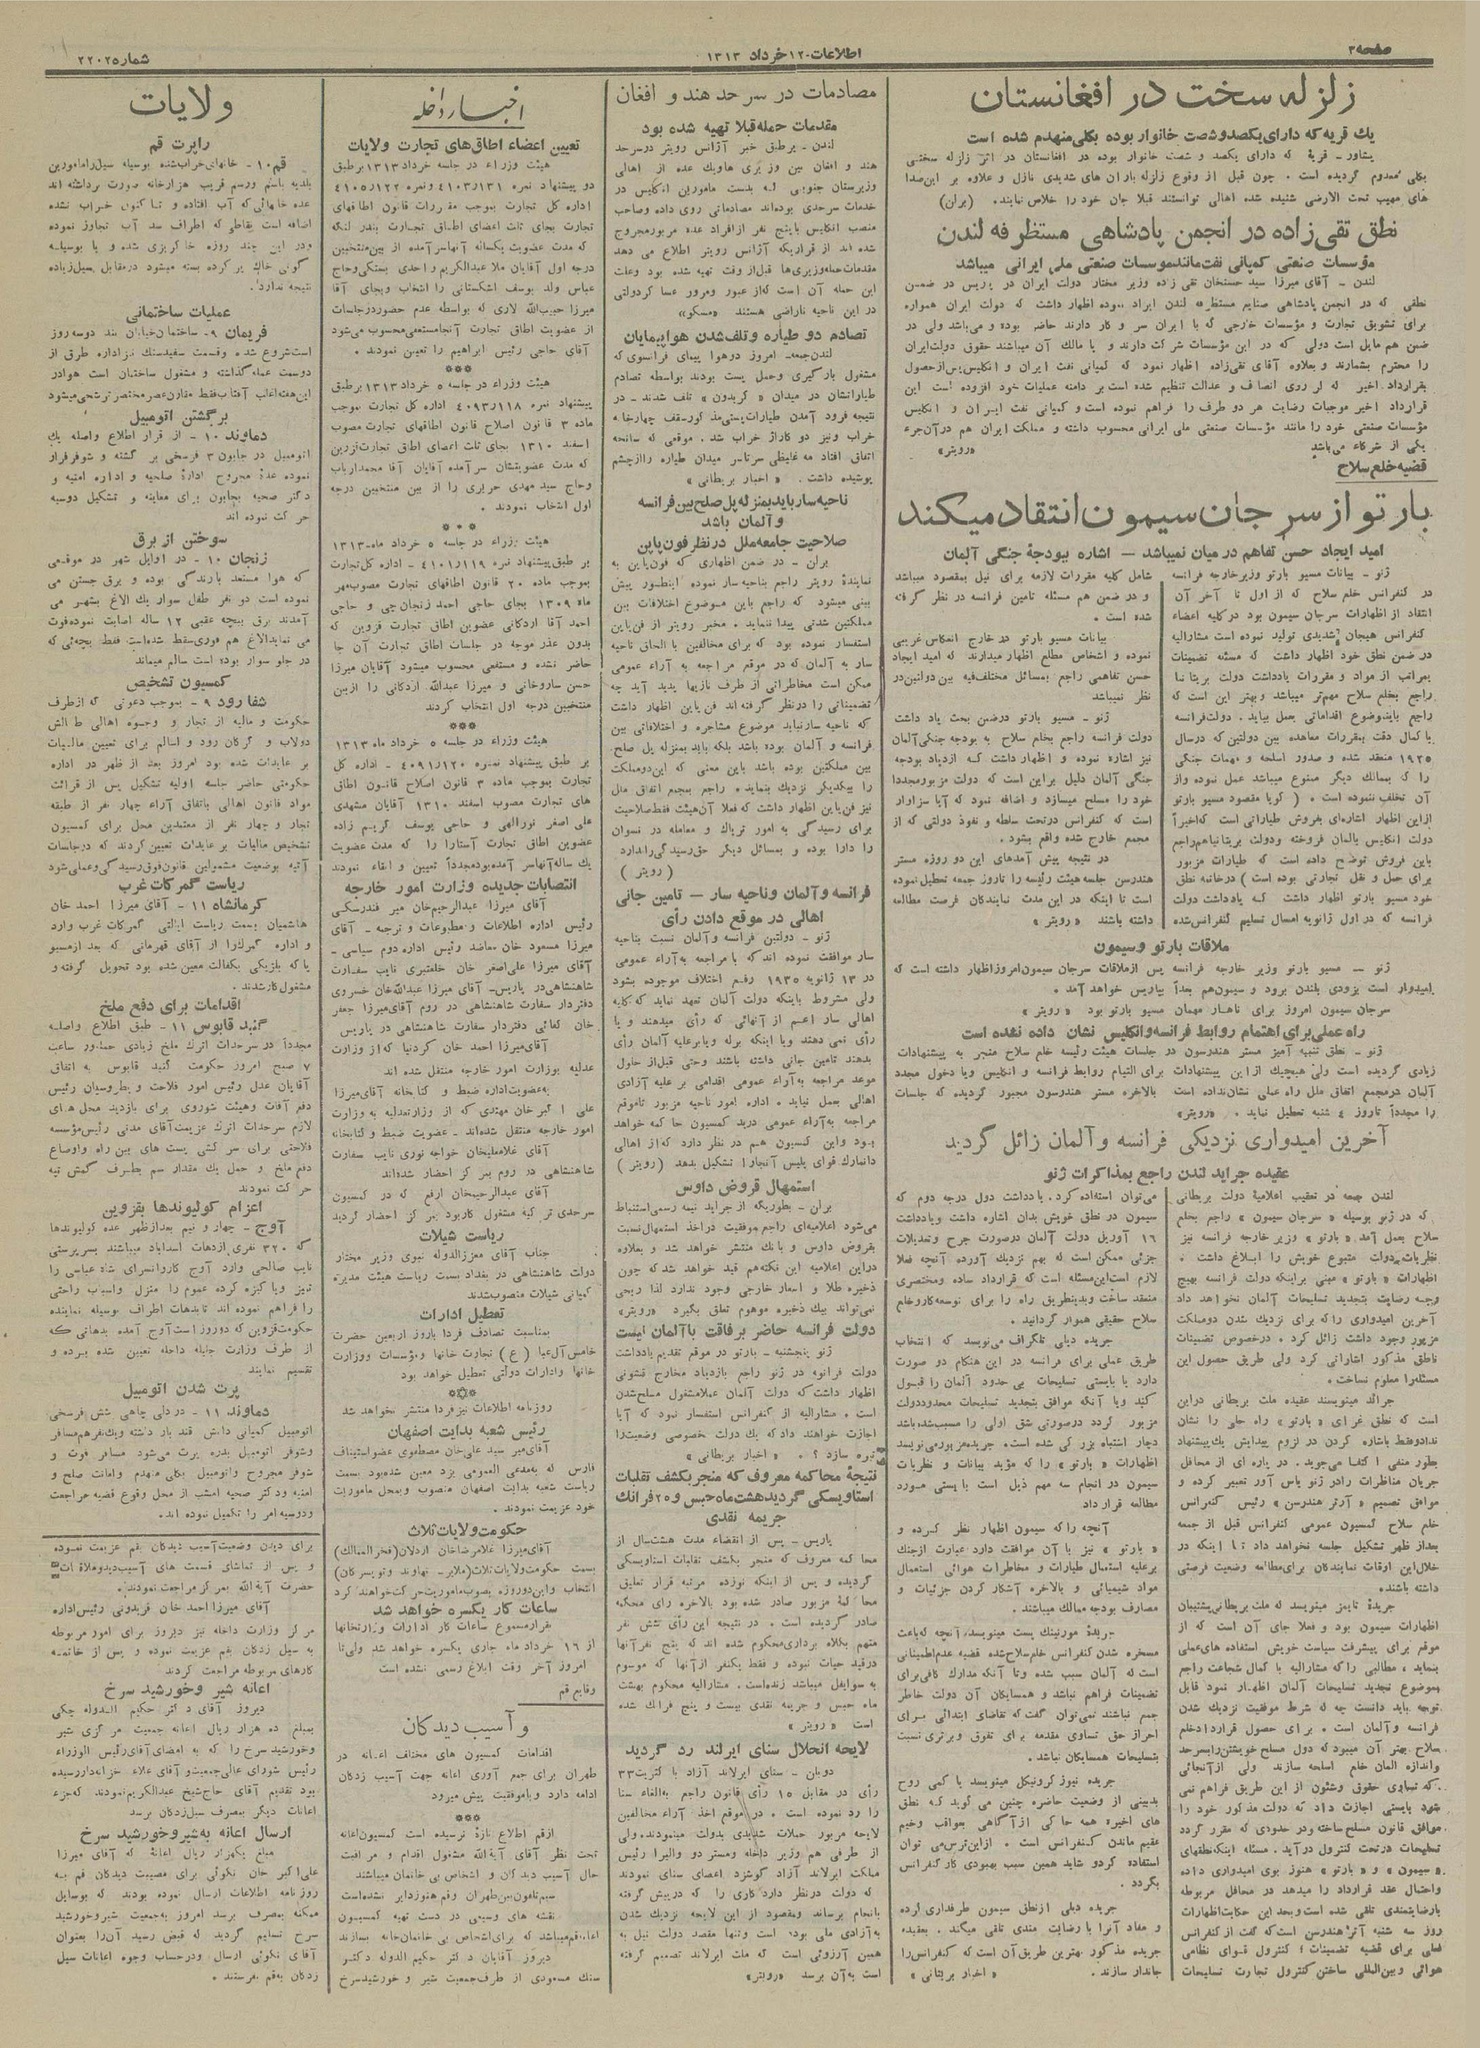 صفحه ۳
اطلاعات - ۱۲ خرداد ۱۳۱۳
شماره ۲۲۰۲
زلزله سخت در افغانستان
یك قریه که دارای یکصد و شصت خانوار بوده بکلی منهدم شده است
پیشاور - قریهٔ که دارای یکصد و شصت خانوار بوده در افغانستان در اثر زلزله سختی
بکلی معدوم گردیده است . چون قبل از وقوع زلزله باران های شدیدی نازل و علاوه بر این صدا
های مهیب تحت الارضی شنیده شده اهالی توانستند قبلا جان خود را خلاص نمایند . (پران)
نطق تقی زاده در انجمن پادشاهی مستظرفه لندن
مؤسسات صنعتی کمپانی نفت مانند موسسات صنعتی ملی ایرانی میباشد
لندن - آقای میرزا سید حسنخان تقی زاده وزیر مختار دولت ایران در پاریس در ضمن
نطقی که در انجمن پادشاهی صنایع مستظرفه لندن ایراد نموده اظهار داشت که دولت ایران همواره
برای تشویق تجارت و مؤسسات خارجی که با ایران سر و کار دارند حاضر بوده و میباشد ولی در
ضمن هم مایل است دولی که در این مؤسسات شرکت دارند و یا مالك آن میباشند حقوق دولت ایران
را محترم بشمارند و بعلاوه آقای تقی زاده اظهار نمود که کمپانی نفت ایران و انگلیس پس از حصول
بقرارداد اخیر که از روی انصاف و عدالت تنظیم شده است بر دامنه عملیات خود افزوده است این
قرارداد اخیر موجبات رضایت هر دو طرف را فراهم نموده است و کمپانی نفت ایران و انگلیس
مؤسسات صنعتی خود را مانند مؤسسات صنعتی ملی ایرانی محسوب داشته و مملکت ایران هم در آن جزء
یکی از شرکاء می باشد «رویتر»
قضیه خلع سلاح
بارتو از سر جان سیمون انتقاد میکند
امید ایجاد حسن تفاهم در میان نمیباشد — اشاره ببودجهٔ جنگی آلمان
ژنو - بیانات مسیو بارتو وزیر خارجه فرانسه
در کنفرانس خلع سلاح که از اول تا آخر آن
انتقاد از اظهارات سرجان سیمون بود در کلیه اعضاء
کنفرانس هیجان شدیدی تولید نموده است مشارالیه
در ضمن نطق خود اظهار داشت که مسئله تضمینات
بمراتب از مواد و مقررات یادداشت دولت بریتانیا
راجع بخلع سلاح مهمتر میباشد و بهتر این است که
راجع باین موضوع اقداماتی بعمل بیاید . دولت فرانسه
با کمال دقت بمقررات معاهده بین دولتین که در سال
۱۹۲۵ منعقد شده و صدور اسلحه و مهمات جنگی
را که بممالك دیگر ممنوع میباشد عمل نموده و از
آن تخلف ننموده است . ( گویا مقصود مسیو بارتو
از این اظهار اشاره‌ای بفروش طیاراتی است که اخیراً
دولت انگلیس بالمان فروخته ودولت بریتانیا هم راجع
باین فروش توضیح داده است که طیارات مزبور
برای حمل و نقل تجارتی بوده است ) در خاتمه نطق
خود مسیو بارتو اظهار داشت که یادداشت دولت
فرانسه که در اول ژانویه امسال تسلیم کنفرانس شده
شامل کلیه مقررات لازمه برای نیل بمقصود میباشد
و در ضمن هم مسئله تامین فرانسه در نظر گرفته
شده است .
بیانات مسیو بارتو در خارج انعکاس غریبی
نموده و اشخاص مطلع اظهار میدارند که امید ایجاد
حسن تفاهمی راجع بمسائل مختلف فیه بین دولتین در
نظر نمیباشد
ژنو - مسیو بارتو در ضمن بحث یاد داشت
دولت فرانسه راجع بخلع سلاح به بودجه جنگی آلمان
نیز اشاره نموده و اظهار داشت که ازدیاد بودجه
جنگی آلمان دلیل بر این است که دولت مزبور مجددا
خود را مسلح میسازد و اضافه نمود که آیا سزاوار
است که کنفرانس در تحت سلطه و نفوذ دولتی که از
مجمع خارج شده واقع بشود .
در نتیجه پیش آمدهای این دو روزه مستر
هندرسن جلسه هیئت رئیسه را تا روز جمعه تعطیل نموده
است تا اینکه در این مدت نمایندگان فرصت مطالعه
داشته باشند « رویتر »
ملاقات بارتو وسیمون
ژنو — مسیو بارتو وزیر خارجه فرانسه پس از ملاقات سرجان سیمون امروز اظهار داشته است که
امیدوار است بزودی بلندن برود و سیمون هم بعداً بپاریس خواهد آمد .
سرجان سیمون امروز برای ناهار مهمان مسیو بارتو بود « رویتر »
راه عملی برای اهتمام روابط فرانسه و انگلیس نشان داده نشده است
ژنو - نطق تنبیه آمیز مستر هندرسون در جلسات هیئت رئیسه خلع سلاح منجر به پیشنهادات
زیادی گردیده است ولی هیچیك از این پیشنهادات برای التیام روابط فرانسه و انگلیس و یا دخول مجدد
آلمان در مجمع اتفاق ملل راه عملی نشان نداده است بالاخره مستر هندرسون مجبور گردیده که جلسات
را مجدداً تا روز ٤ شنبه تعطیل نماید . «رویتر»
آخرین امیدواری نزدیکی فرانسه و آلمان زائل گردید
عقیده جراید لندن راجع بمذاکرات ژنو
لندن جمعه در تعقیب اعلامیهٔ دولت بریطانی
که در ژنو بوسیله « سرجان سیمون » راجع بخلع
سلاح بعمل آمد « بارتو » وزیر خارجه فرانسه نیز
نظریات دولت متبوع خویش را ابلاغ داشت .
اظهارات « بارتو » مبنی بر اینکه دولت فرانسه بهیچ
وجه رضایت بتجدید تسلیحات آلمان نخواهد داد
آخرین امیدواری را که برای نزدیك شدن دو مملکت
مزبور وجود داشت زائل کرد . در خصوص تضمینات
ناطق مذکور اشاراتی کرد ولی طریق حصول این
مسئله را معلوم نساخت .
جرائد مینویسند عقیده ملت بریطانی در این
است که نطق غرای « بارتو » راه حلی را نشان
نداد و فقط باشاره کردن در لزوم پیدایش یك پیشنهاد
بطور منفی اکتفا می جوید . در پاره ای از محافل
جریان مناظرات را در ژنو یاس آور تعبیر کرده و
موافق تصمیم « آرتر هندرسن » رئیس کنفرانس
خلع سلاح کمسیون عمومی کنفرانس قبل از جمعه
بعد از ظهر تشکیل جلسه نخواهد داد تا اینکه در
خلال این اوقات نمایندگان برای مطالعه وضعیت فرصتی
داشته باشند.
جریدهٔ تایمز مینویسد که ملت بریطانی پشتیبان
اظهارات سیمون بود و فعلا جای آن است که از
موقع برای پیشرفت سیاست خویش استفاده های عملی
بنماید ، مطالبی را که مشارالیه با کمال شجاعت راجع
بموضوع تجدید تسلیحات آلمان اظهار نمود قابل
توجه باید دانست چه که شرط موفقیت نزدیك شدن
فرانسه و آلمان است . برای حصول قرارداد خلع
سلاح بهتر آن میبود که دول مسلح خویشتن را بسرحد
واندازه المان خلع اسلحه سازند ولی از آنجائی
که تساوی حقوق وشئون از این طریق فراهم نمی
شود بایستی اجازت داد که دولت مذکور خود را
موافق قانون مسلح ساخته و در حدودی که مقرر گردد
تسلیحات در تحت کنترول در آید . مسئله اینکه نطقهای
« سیمون » و « بارتو » هنوز بوی امیدواری داده
واحتمال عقد قرارداد را میدهد در محافل مربوطه
بارضایتمندی تلقی شده است و بعد این حکایت اظهارات
روز سه شنبه آرتر هندرسن است که گفت از کنفرانس
فعلی برای قضیه تضمینات ؛ کنترول قوای نظامی
هوائی و بین‌المللی ساختن کنترول تجارت تسلیحات
می توان استفاده کرد . یادداشت دول درجه دوم که
سیمون در نطق خویش بدان اشاره داشت و یادداشت
۱۶ آوریل دولت آلمان در صورت جرح و تعدیلات
جزئی ممکن است که بهم نزدیك آورده آنچه فعلا
لازم است این مسئله است که قرارداد ساده و مختصری
منعقد ساخت و بدینطریق راه را برای توسعه کار و خلع
سلاح حقیقی هموار گردانید .
جریده دیلی تلگراف می نویسد که انتخاب
طریق عملی برای فرانسه در این هنگام دو صورت
دارد یا بایستی تسلیحات بی حدود آلمان را قبول
کند و یا آنکه موافق بتجدید تسلیحات محدود دولت
مزبور گردد در صورتی شق اولی را مسبب شده باشد
دچار اشتباه بزرگی شده است . جریده مزبور می نویسد
اظهارات « بارتو » را که مؤید بیانات و نظریات
سیمون در انجام سه مهم ذیل است بایستی مورد
مطالعه قرار داد
آنچه را که سیمون اظهار نظر کرده و
« بارتو » نیز با آن موافقت دارد عبارت از جنگ
بر علیه استعمال طیارات و مخاطرات هوائی استعمال
مواد شیمیائی و بالاخره آشکار کردن جزئیات و
مصارف بودجه ممالك میباشند .
جریدهٔ مورنینك پست مینویسد ، آنچه که باعث
مسخره شدن کنفرانس خلع سلاح شده قضیه عدم اطمینانی
است که آلمان سبب شده وتا آنکه مدارك کافی برای
تضمینات فراهم نباشد و همسایگان آن دولت خاطر
جمع نباشند نمی توان گفت که تقاضای ابتدائی برای
احراز حق تساوی مقدمه برای تفوق و برتری نسبت
بتسلیحات همسایگان نباشد .
جریده نیوز کرونیکل مینویسد با کمی روح
بدبینی از وضعیت حاضره چنین می گوید که نطق
های اخیره همه حاکی از آگاهی بعواقب وخیم
عقیم ماندن کنفرانس است . از این ترس می توان
استفاده کرد و شاید همین سبب بهبودی کار کنفرانس
بگردد .
جریده دیلی از نطق سیمون طرفداری کرده
و مفاد آنرا با رضایت مندی تلقی میکند . بعقیده
جریده مذکور بهترین طریق آن است که کنفرانس را
جاندار سازند . « اخبار بریتانی »
مصادمات در سر حد هند و افغان
مقدمات حمله قبلا تهیه شده بود
لندن - بر طبق خبر آژانس رویتر در سرحد
هند و افغان بین وزیری ها و یك عده از اهالی
وزیرستان جنوبی که بدست مامورین انگلیس در
خدمات سرحدی بوده‌اند مصادماتی روی داده و صاحب
منصب انگلیس با پنج نفر از افراد عده مزبور مجروح
شده اند از قراریکه آژانس رویتر اطلاع می دهد
مقدمات حمله وزیری ها قبل از وقت تهیه شده بود و علت
این حمله آن است که از عبور و مرور عساکر دولتی
در این ناحیه ناراضی هستند «مسکو»
تصادم دو طیاره و تلف شدن هواپیمایان
لندن جمعه - امروز دو هوا پیمای فرانسوی که
مشغول بار گیری وحمل پست بودند بواسطه تصادم
طیاراتشان در میدان « کریدون » تلف شدند - در
نتیجه فرود آمدن طیارات پستی مذکور سقف چهار خانه
خراب ونیز دو کاراژ خراب شد . موقعی که سانحه
اتفاق افتاد مه غلیظی سرتاسر میدان طیاره را از چشم
پوشیده داشت . « اخبار بریطانی »
ناحیه سار باید بمنزله پل صلح بین فرانسه
و آلمان باشد
صلاحیت جامعه ملل در نظر فون پاپن
برلن - در ضمن اظهاری که فون پاپن به
نمایندهٔ رویتر راجع بناحیه سار نموده اینطور پیش
بینی میشود که راجع باین موضوع اختلافات بین
مملکتین شدتی پیدا ننماید . مخبر رویتر از فن پاپن
استفسار نموده بود که برای مخالفین با الحاق ناحیه
سار به آلمان که در موقع مراجعه به آراء عمومی
ممکن است مخاطراتی از طرف نازیها پدید آید چه
تضمیناتی را در نظر گرفته اند فن پاپن اظهار داشت
که ناحیه سار نباید موضوع مشاجره و اختلافاتی بین
فرانسه و آلمان بوده باشد بلکه باید بمنزله پل صلح
بین مملکتین بوده باشد باین معنی که این دو مملکت
را بیکدیگر نزدیك بنماید . راجع بمجمع اتفاق ملل
نیز فن پاپن اظهار داشت که فعلا آن هیئت فقط صلاحیت
برای رسیدگی به امور تریاك و معامله در نسوان
را دارا بوده و بمسائل دیگر حق رسیدگی را ندارد
( رویتر )
فرانسه و آلمان و ناحیه سار — تامین جانی
اهالی در موقع دادن رأی
ژنو - دولتین فرانسه و آلمان نسبت بناحیه
سار موافقت نموده اند که با مراجعه به آراء عمومی
در ۱۳ ژانویه ۱۹۳۵ رفع اختلاف موجوده بشود
ولی مشروط باینکه دولت آلمان تعهد نماید که کلیه
اهالی سار اعم از آنهائی که رأی میدهند و یا
رأی نمی دهند ویا اینکه برله ویا بر علیه آلمان رأی
بدهند تامین جانی داشته باشند وحتی قبل از حلول
موعد مراجعه به آراء عمومی اقدامی بر علیه آزادی
اهالی بعمل نیاید . اداره امور ناحیه مزبور تا موقع
مراجعه به آراء عمومی در ید کمسیون حاکمه خواهد
بود و این کمسیون هم در نظر دارد که از اهالی
دانمارك قوای پلیس آنجا را تشکیل بدهد ( رویتر )
استمهال قروض داوس
برلن - بطوریکه از جراید نیمه رسمی استنباط
می شود اعلامیه‌ای راجع موفقیت در اخذ استمهال نسبت
بقروض داوس و بانك منتشر خواهد شد و بعلاوه
در این اعلامیه این نکته هم قید خواهد شد که چون
ذخیره طلا و اسعار خارجی وجود ندارد لذا ربحی
نمی تواند بیك ذخیره موهوم تعلق بگیرد «رویتر»
دولت فرانسه حاضر برفاقت با آلمان نیست
ژنو پنجشنبه - بارتو در موقع تقدیم یادداشت
دولت فرانسه در ژنو راجع بازدیاد مخارج قشونی
اظهار داشت که دولت آلمان عملا مشغول مسلح شدن
است . مشارالیه از کنفرانس استفسار نمود که آیا
اجازت خواهند داد که یك دولت خصوصی وضعیت را
تیره سازد ؟ . « اخبار بریطانی »
نتیجهٔ محاکمه معروف که منجر بکشف تقلبات
استاویسکی گردید هشت ماه حبس و ۲۵ فرانك
جریمه نقدی
پاریس - پس از انقضاء مدت هشت سال از
محاکمه معروف که منجر بکشف تقلبات استاویسکی
گردیده و پس از اینکه نوزده مرتبه قرار تعلیق
محاکمهٔ مزبور صادر شده بود بالاخره رای محکمه
صادر گردیده است . در نتیجه این رأی شش نفر
متهم بکلاه برداری محکوم شده اند که پنج نفر آنها
در قید حیات نبوده و فقط یکنفر از آنها که موسوم
به سوایفل میباشد زنده است . مشارالیه محکوم بهشت
ماه حبس و جریمه نقدی بیست و پنج فرانك شده
است « رویتر »
لایحه انحلال سنای ایرلند رد گردید
دوبلن - سنای ایرلاند آزاد با کثریت ۳۳
رأی در مقابل ۱۵ رأی قانون راجع به الغاء سنا
را رد نموده است . در موقع اخذ آراء مخالفین
لایحه مزبور حملات شدیدی بدولت مینمودند . ولی
از طرفی هم وزیر داخله و مستر دو والیرا رئیس
مملکت ایرلاند آزاد گوشزد اعضای سنای نمودند
که دولت در نظر دارد کاری را که در پیش گرفته
بانجام برساند ومقصود از این لایحه نزدیك شدن
به آزادی ملی بوده است وتنها مقصد دولت نیل به
همین آرزوئی است که ملت ایرلاند تصمیم گرفته
است به آن برسد «رویتر»
اخبار داخله
تعیین اعضاء اطاق های تجارت ولایات
هیئت وزراء در جلسه خرداد ۱۳۱۳ بر طبق
دو پیشنهاد نمره ٤۱۰۳/۱۳۱ ونمره ٤۱۰۵/۱۲۲
اداره کل تجارت بموجب مقررات قانون اطاقهای
تجارت بجای ثلث اعضای اطاق تجارت بندر لنگه
که مدت عضویت یکساله آنها سر آمده از بین منتخبین
درجه اول آقایان ملا عبدالکریم واحدی بستکی وحاج
عباس ولد یوسف اشکستانی را انتخاب وبجای آقا
میرزا حبیب‌الله لاری که بواسطه عدم حضور در جلسات
از عضویت اطاق تجارت آنجا مستعفی محسوب می شود
آقای حاجی رئیس ابراهیم را تعیین نمودند .
***
هیئت وزراء در جلسه ۵ خرداد ۱۳۱۳ بر طبق
پیشنهاد نمره ٤۰۹۳/۱۱۸ اداره کل تجارت بموجب
ماده ۳ قانون اصلاح قانون اطاقهای تجارت مصوب
اسفند ۱۳۱۰ بجای ثلث اعضای اطاق تجارت قزوین
که مدت عضویتشان سر آمده آقایان آقا محمد ارباب
وحاج سید مهدی حریری را از بین منتخبین درجه
اول انتخاب نمودند .
***
هیئت وزراء در جلسه ۵ خرداد ماه ۱۳۱۳
بر طبق پیشنهاد نمره ٤۱۰۱/۱۱۹ - اداره کل تجارت
بموجب ماده ۲۰ قانون اطاقهای تجارت مصوب مهر
ماه ۱۳۰۹ بجای حاجی احمد زنجان چی و حاجی
احمد آقا اردکانی عضوین اطاق تجارت قزوین که
بدون عذر موجه در جلسات اطاق تجارت آن جا
حاضر نشده و مستعفی محسوب میشود آقایان میرزا
حسن ساروخانی و میرزا عبدالله اردکانی را از بین
منتخبین درجه اول انتخاب کردند
***
هیئت وزراء در جلسه ۵ خرداد ماه ۱۳۱۳
بر طبق پیشنهاد نمره ٤۰۹۱/۱۲۰ - اداره کل
تجارت بموجب ماده ۳ قانون اصلاح قانون اطاق
های تجارت مصوب اسفند ۱۳۱۰ آقایان مشهدی
علی اصغر نورالهی و حاجی یوسف کریم زاده
عضوین اطاق تجارت آستارا را که مدت عضویت
یك ساله آنها سر آمده بود مجدداً تعیین و ابقاء نمودند
انتصابات جدیده وزارت امور خارجه
آقای میرزا عبدالرحیم خان میر فندرسکی
رئیس اداره اطلاعات و مطبوعات و ترجمه - آقای
میرزا مسعود خان معاضد رئیس اداره دوم سیاسی -
آقای میرزا علی‌اصغر خان خلعتبری نایب سفارت
شاهنشاهی در پاریس - آقای میرزا عبدالله خان خسروی
دفتردار سفارت شاهنشاهی در روم آقای میرزا جعفر
خان کفائی دفتردار سفارت شاهنشاهی در پاریس
آقای میرزا احمد خان کردنیا که از وزارت
عدلیه بوزارت امور خارجه منتقل شده اند
به عضویت اداره ضبط و کتابخانه آقای میرزا
علی اکبر خان مهتدی که از وزارت عدلیه به وزارت
امور خارجه منتقل شده‌اند - عضویت ضبط و کتابخانه
آقای غلامعلیخان خواجه نوری نایب سفارت
شاهنشاهی در روم بمرکز احضار شده‌اند
آقای عبدالرحیمخان ارفع که در کمسیون
سرحدی ترکیه مشغول کار بود بمرکز احضار گردید
ریاست شیلات
جناب آقای معززالدوله نبوی وزیر مختار
دولت شاهنشاهی در بغداد بسمت ریاست هیئت مدیره
کمپانی شیلات منصوب شدند
تعطیل ادارات
بمناسبت تصادف فردا با روز اربعین حضرت
خامس آل‌عبا ( ع ) تجارت خانها و مؤسسات ووزارت
خانها وادارات دولتی تعطیل خواهد بود
***
روزنامه اطلاعات نیز فردا منتشر نخواهد شد
رئیس شعبه بدایت اصفهان
آقای میر سید علی خان مصطفوی عضو استیناف
فارس که به مدعی العمومی یزد معین شده بود بسمت
ریاست شعبه بدایت اصفهان منصوب وبمحل ماموریت
خود عزیمت نمودند .
حکومت ولایات ثلاث
آقای میرزا غلامرضا خان اردلان (فخر الممالك)
بسمت حکومت ولایات ثلاث (ملایر - نهاوند و تویسرکان)
انتخاب واین دو روزه بصوب ماموریت حرکت خواهند کرد
ساعات کار یکسره خواهد شد
بقرار مسموع ساعات کار ادارات و وزارتخانها
از ۱۶ خرداد ماه جاری یکسره خواهد شد ولی تا
امروز آخر وقت ابلاغ رسمی نشده است
وقایع قم
و آسیب دیدگان
اقدامات کمسیون های مختلف اعانه در
طهران برای جمع آوری اعانه جهت آسیب زدگان
ادامه دارد و باموفقیت پیش میرود
***
از قم اطلاع تازهٔ نرسیده است کمسیون اعانه
تحت نظر آقای آیةالله مشغول اقدام و مراقبت
حال آسیب دیدگان و اشخاص بی خانمان میباشند
سیم تلفون بین طهران وقم هنوز دایر نشده است
نقشه های وسیعی در دست تهیه کمسیون
اعانه قم میباشد که برای اشخاص بی خانمان خانه بسازند
دیروز آقایان دکتر حکیم الدوله دکتر
سنك مسعودی از طرف جمعیت شیر و خورشید سرخ
ولایات
راپرت قم
قم ۱۰ - خانهای خراب شده بوسیله سیل را مامورین
بلدیه باسم ورسم قریب هزار خانه صورت برداشته اند
عده خانهائی که آب افتاده و تاکنون خراب نشده
اضافه است بقاطی که اطراف سد آب تجاوز نموده
ودر این چند روزه خاکریزی شده و با بوسیله
گونی خاك پر کرده بسته میشود در مقابل سیل زیاده
نتیجه ندارد .
عملیات ساختمانی
فریمان ۹ - ساختمان خیابان بند دوسه روز
است شروع شده وقسمت سفیدسنك نیز اداره طرق از
دوست عمله گذاشته و مشغول ساختمان است هوا در
این هفته اغلب آفتاب فقط مقارن عصر مختصر ترشحی میشود
برگشتن اتومبیل
دماوند ۱۰ - از قرار اطلاع واصله یك
اتومبیل در جابون ۳ فرسخی بر گشته و شوفر فرار
نموده عدهٔ مجروح ادارهٔ صلحیه و اداره امنیه و
دکتر صحیه بجابون برای معاینه و تشکیل دوسیه
حرکت نموده اند
سوختن از برق
زنجان ۱۰ - در اوایل شهر در موقعی
که هوا مستعد بارندگی بوده و برق جستن می
نموده است دو نفر طفل سوار یك الاغ بشهر می
آمدند برق ببچه عقبی ۱۲ ساله اصابت نموده فوت
می نماید الاغ هم فوری سقط شده است فقط بچه‌ئی که
در جلو سوار بوده است سالم میماند
کمسیون تشخیص
شفا رود ۹ - بموجب دعوتی که از طرف
حکومت و مالیه از تجار و وجوه اهالی طالش
دولاب و گرگان رود و اسالم برای تعیین مالیات
بر عایدات شده بود امروز بعد از ظهر در اداره
حکومتی حاضر جلسه اولیه تشکیل پس از قرائت
مواد قانون اهالی باتفاق آراء چهار نفر از طبقه
تجار و چهار نفر از معتمدین محل برای کمسیون
تشخیص مالیات بر عایدات تعیین کردند که در جلسات
آتیه بوضعیت مشمولین قانون فوق رسیدگی و عملی شود
ریاست گمرکات غرب
کرمانشاه ۱۱ - آقای میرزا احمد خان
هاشمیان بسمت ریاست ایالتی گمرکات غرب وارد
و اداره گمرك را از آقای قهرمانی که بعد از مسیو
یاکه بلژیکی بکفالت معین شده بود تحویل گرفته و
مشغول کار شدند .
اقدامات برای دفع ملخ
گنبد قابوس ۱۱ - طبق اطلاع واصله
مجدداً در سرحدات اترك ملخ زیادی حمله‌ور ساعت
۷ صبح امروز حکومت گنبد قابوس به اتفاق
آقایان عدل رئیس امور فلاحت و بطروسیان رئیس
دفع آفات وهیئت شوروی برای بازدید محل های
لازم سرحدات اترك عزیمت آقای مدنی رئیس مؤسسه
فلاحتی برای سرکشی پست های بین راه واوضاع
دفع ملخ و حمل یك مقدار سم بطرف گمش تپه
حرکت نمودند
اعزام کولیوندها بقزوین
آوج - چهار و نیم بعد از ظهر عده کولیوندها
که ۳۲۰ نفری از دهات اسدآباد میباشند بسرپرستی
نایب صالحی وارد آوج کاروانسرای شاه عباسی را
تمیز و پاکیزه کرده عموم را منزل واسباب راحتی
را فراهم نموده اند تا بدهات اطراف بوسیله نماینده
حکومت قزوین که دو روز است آوج آمده بدهاتی که
از طرف وزارت جلیله داخله تعیین شده برده و
تقسیم نمایند
پرت شدن اتومبیل
دماوند ۱۱ - در دلی چای شش فرسخی
اتومبیل کمپانی دانش قند بار داشته ویك نفر هم مسافر
وشوفر اتومبیل بدره پرت می شود مسافر فوت و
شوفر مجروح واتومبیل بکلی منهدم وامانت صلح و
امنیه و دکتر صحیه امشب از محل وقوع قضیه مراجعت
ودوسیه امر را تکمیل نموده اند .
برای دیدن وضعیت آسیب دیدگان بقم عزیمت نموده
و پس از تماشای قسمت های آسیب دیده و ملاقات
حضرت آیة الله بمرکز مراجعت نمودند .
آقای میرزا احمد خان فریدونی رئیس اداره
مرکز وزارت داخله نیز دیروز برای امور مربوطه
به سیل زدگان بقم عزیمت نموده و پس از خاتمه
کارهای مربوطه مراجعت کردند
اعانه شیر و خورشید سرخ
دیروز آقای دکتر حکیم الدوله چکی
بمبلغ ده هزار ریال اعانه جمعیت مرکزی شیر
وخورشید سرخ را که به امضای آقای رئیس الوزراء
رئیس شورای عالی جمعیت و آقای علاء خزانه دار رسیده
بود تقدیم آقای حاج شیخ عبدالکریم نمودند که جزء
اعانات دیگر بمصرف سیل زدگان برسد
ارسال اعانه به شیر و خورشید سرخ
مبلغ یکهزار ریال اعانهٔ که آقای میرزا
علی اکبر خان نکوئی برای مصیبت دیدگان قم به
روزنامه اطلاعات ارسال نموده بودند که بوسایل
ممکنه بمصرف برسد امروز به جمعیت شیر و خورشید
سرخ تسلیم گردید که قبض رسید آن را بعنوان
آقای نکوئی ارسال و در حساب وجوه اعانات سیل
زدگان به قم بفرستند .